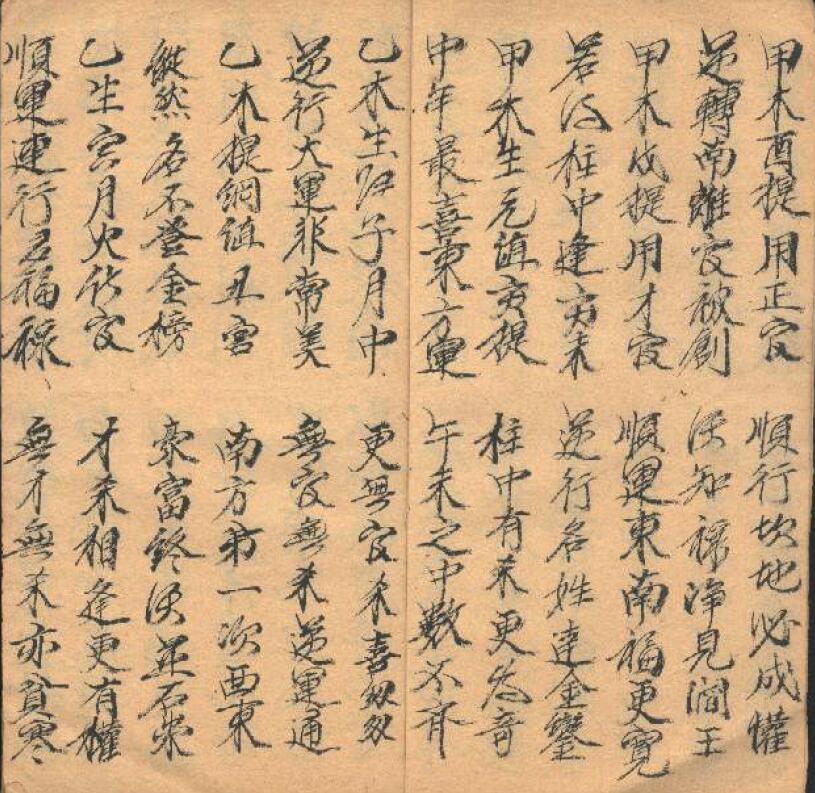 甲木酉提用正官
順行坎地必成權
逆轉南離官被創
須知祿淨見閻王
甲木戌提用才官
順運東南福更寬
若得柱中逢亥未
逆行名姓達金鑾
甲木生元值亥提
柱中有未更為奇
中年最喜東方運
午未之中數不齊
乙木生居子月中
更無官杀喜紛紛
逆行大運非常美
無官無杀逆運通
乙木提綱值丑宮
南方第一次西東
縱然名不登金榜
豪富終須並石崇
乙生寅月火化官
才杀相逢更有權
順運連行多福祿
無才無杀亦貧寒